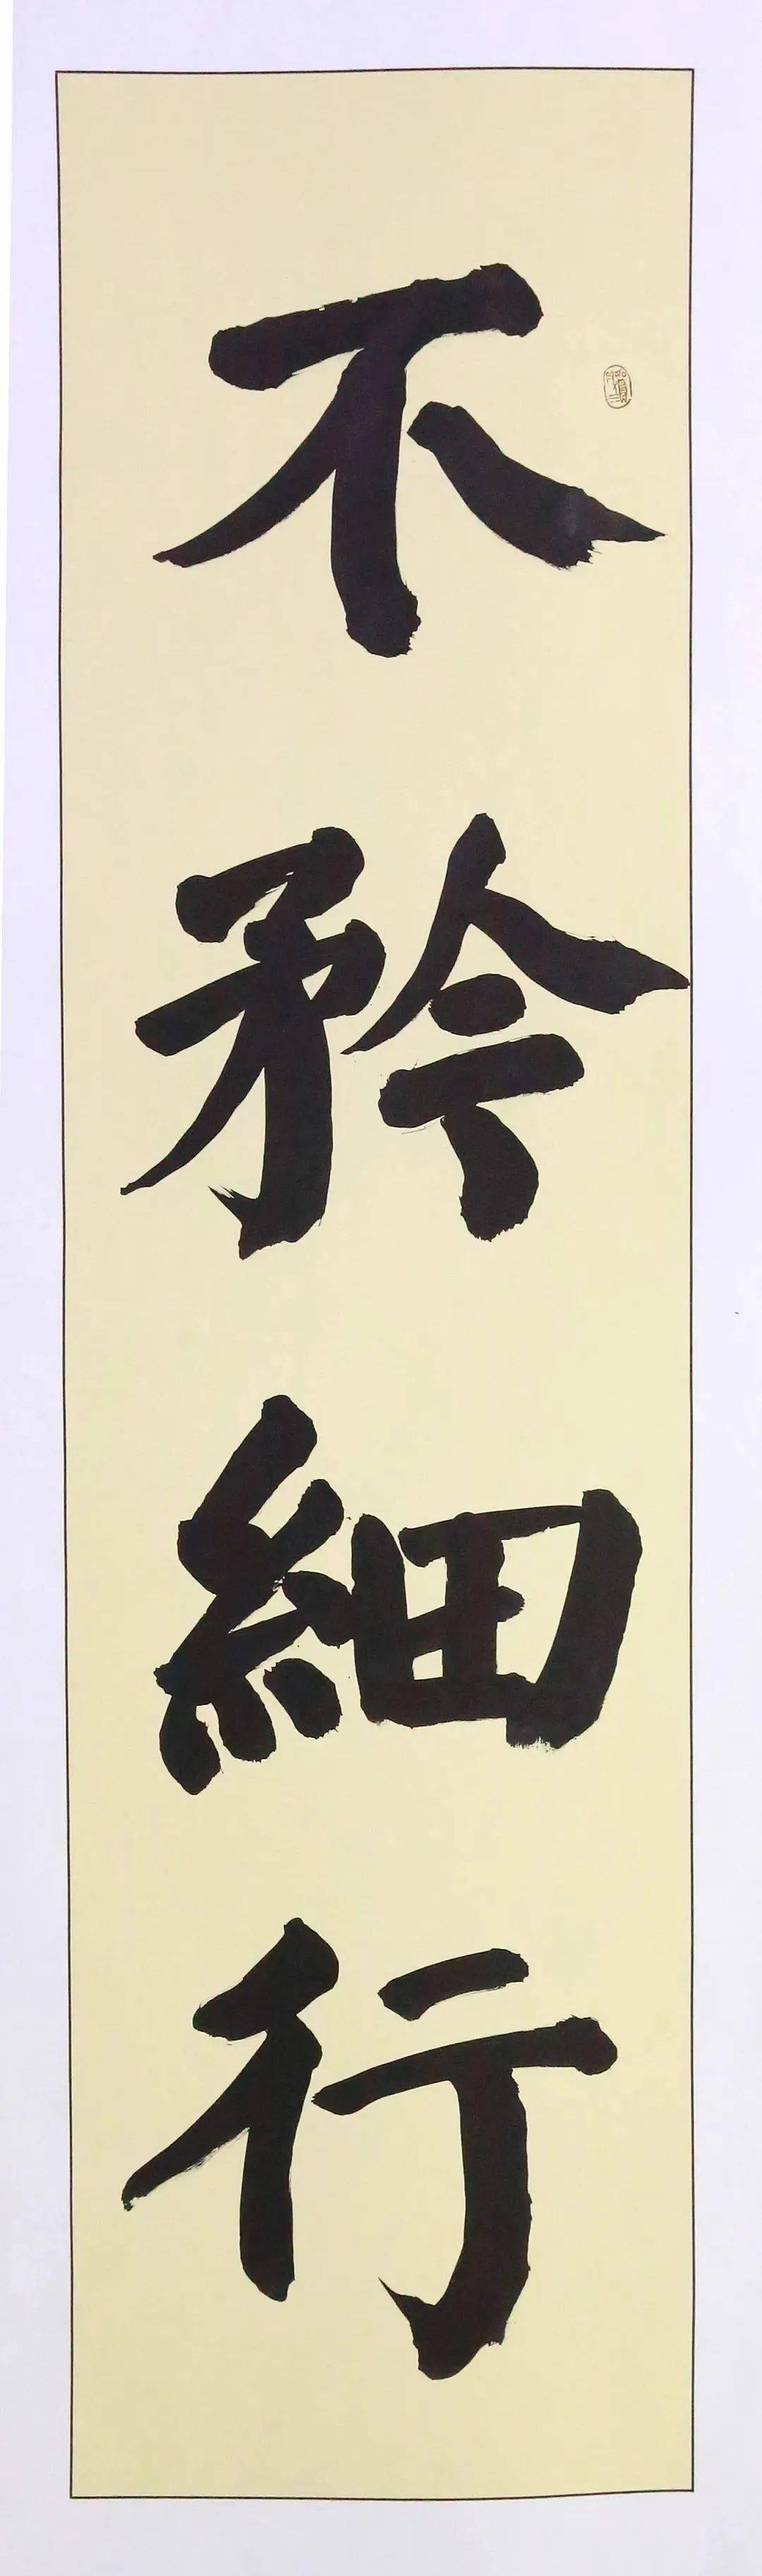 不矜細行